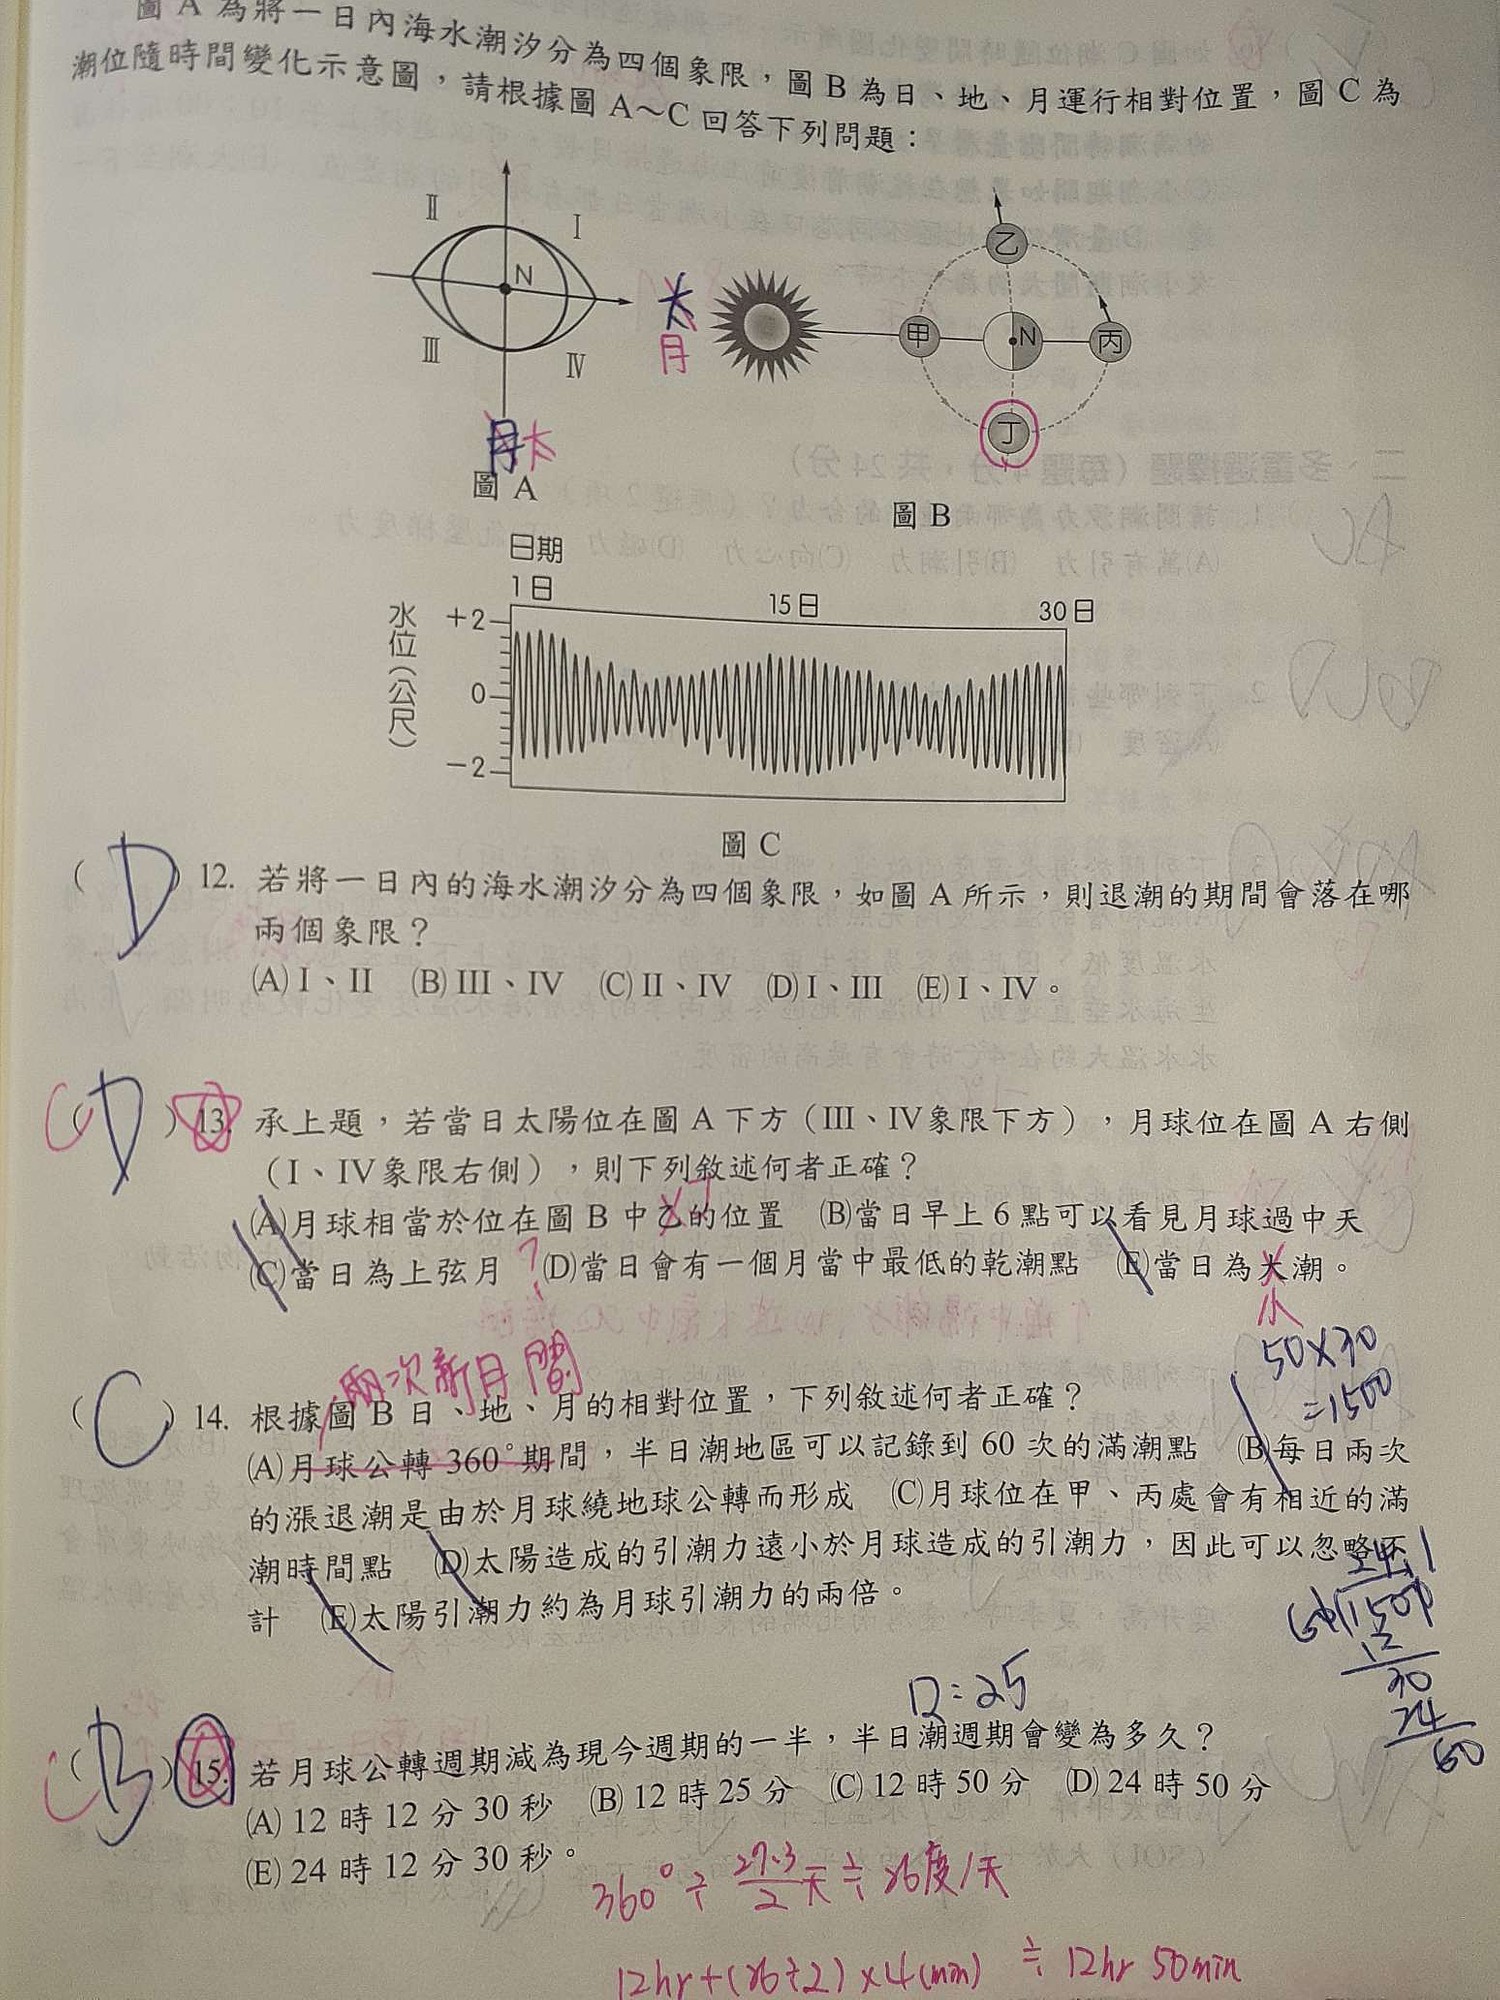 圖 A 為將一日內海水潮汐分為四個象限，圖 B 為日、地、月運行相對位置，圖 C 為
潮位隨時間變化示意圖，請根據圖 A～C 回答下列問題：
II
I
N
III
IV
太
月
月太
圖 A
乙
甲
N
丙
丁
圖 B
日期
1日
15日
30日
水位（公尺）
+2
0
−2
圖 C
( D ) 12. 若將一日內的海水潮汐分為四個象限，如圖 A 所示，則退潮的期間會落在哪
兩個象限？
(A) I、II (B) III、IV (C) II、IV (D) I、III (E) I、IV。
C ( D ) 13. 承上題，若當日太陽位在圖 A 下方（III、IV象限下方），月球位在圖 A 右側
（I、IV象限右側），則下列敘述何者正確？
丁
(A)月球相當於位在圖 B 中乙的位置 (B)當日早上 6 點可以看見月球過中天
(C)當日為上弦月 ? (D)當日會有一個月當中最低的乾潮點 (E)當日為大潮。
小
50×30
=1500
兩次新月間
( C ) 14. 根據圖 B 日、地、月的相對位置，下列敘述何者正確？
(A)月球公轉 360°期間，半日潮地區可以記錄到 60 次的滿潮點 (B)每日兩次
的漲退潮是由於月球繞地球公轉而形成 (C)月球位在甲、丙處會有相近的滿
潮時間點 (D)太陽造成的引潮力遠小於月球造成的引潮力，因此可以忽略不
計 (E)太陽引潮力約為月球引潮力的兩倍。
1500
12
30
24
60
12:25
C ( B ) 15. 若月球公轉週期減為現今週期的一半，半日潮週期會變為多久？
(A) 12 時 12 分 30 秒 (B) 12 時 25 分 (C) 12 時 50 分 (D) 24 時 50 分
(E) 24 時 12 分 30 秒。
360° ÷ 27.3/2 天 ≒ 26度/天
12hr+(26÷2)×4(min) ≒ 12hr 50min